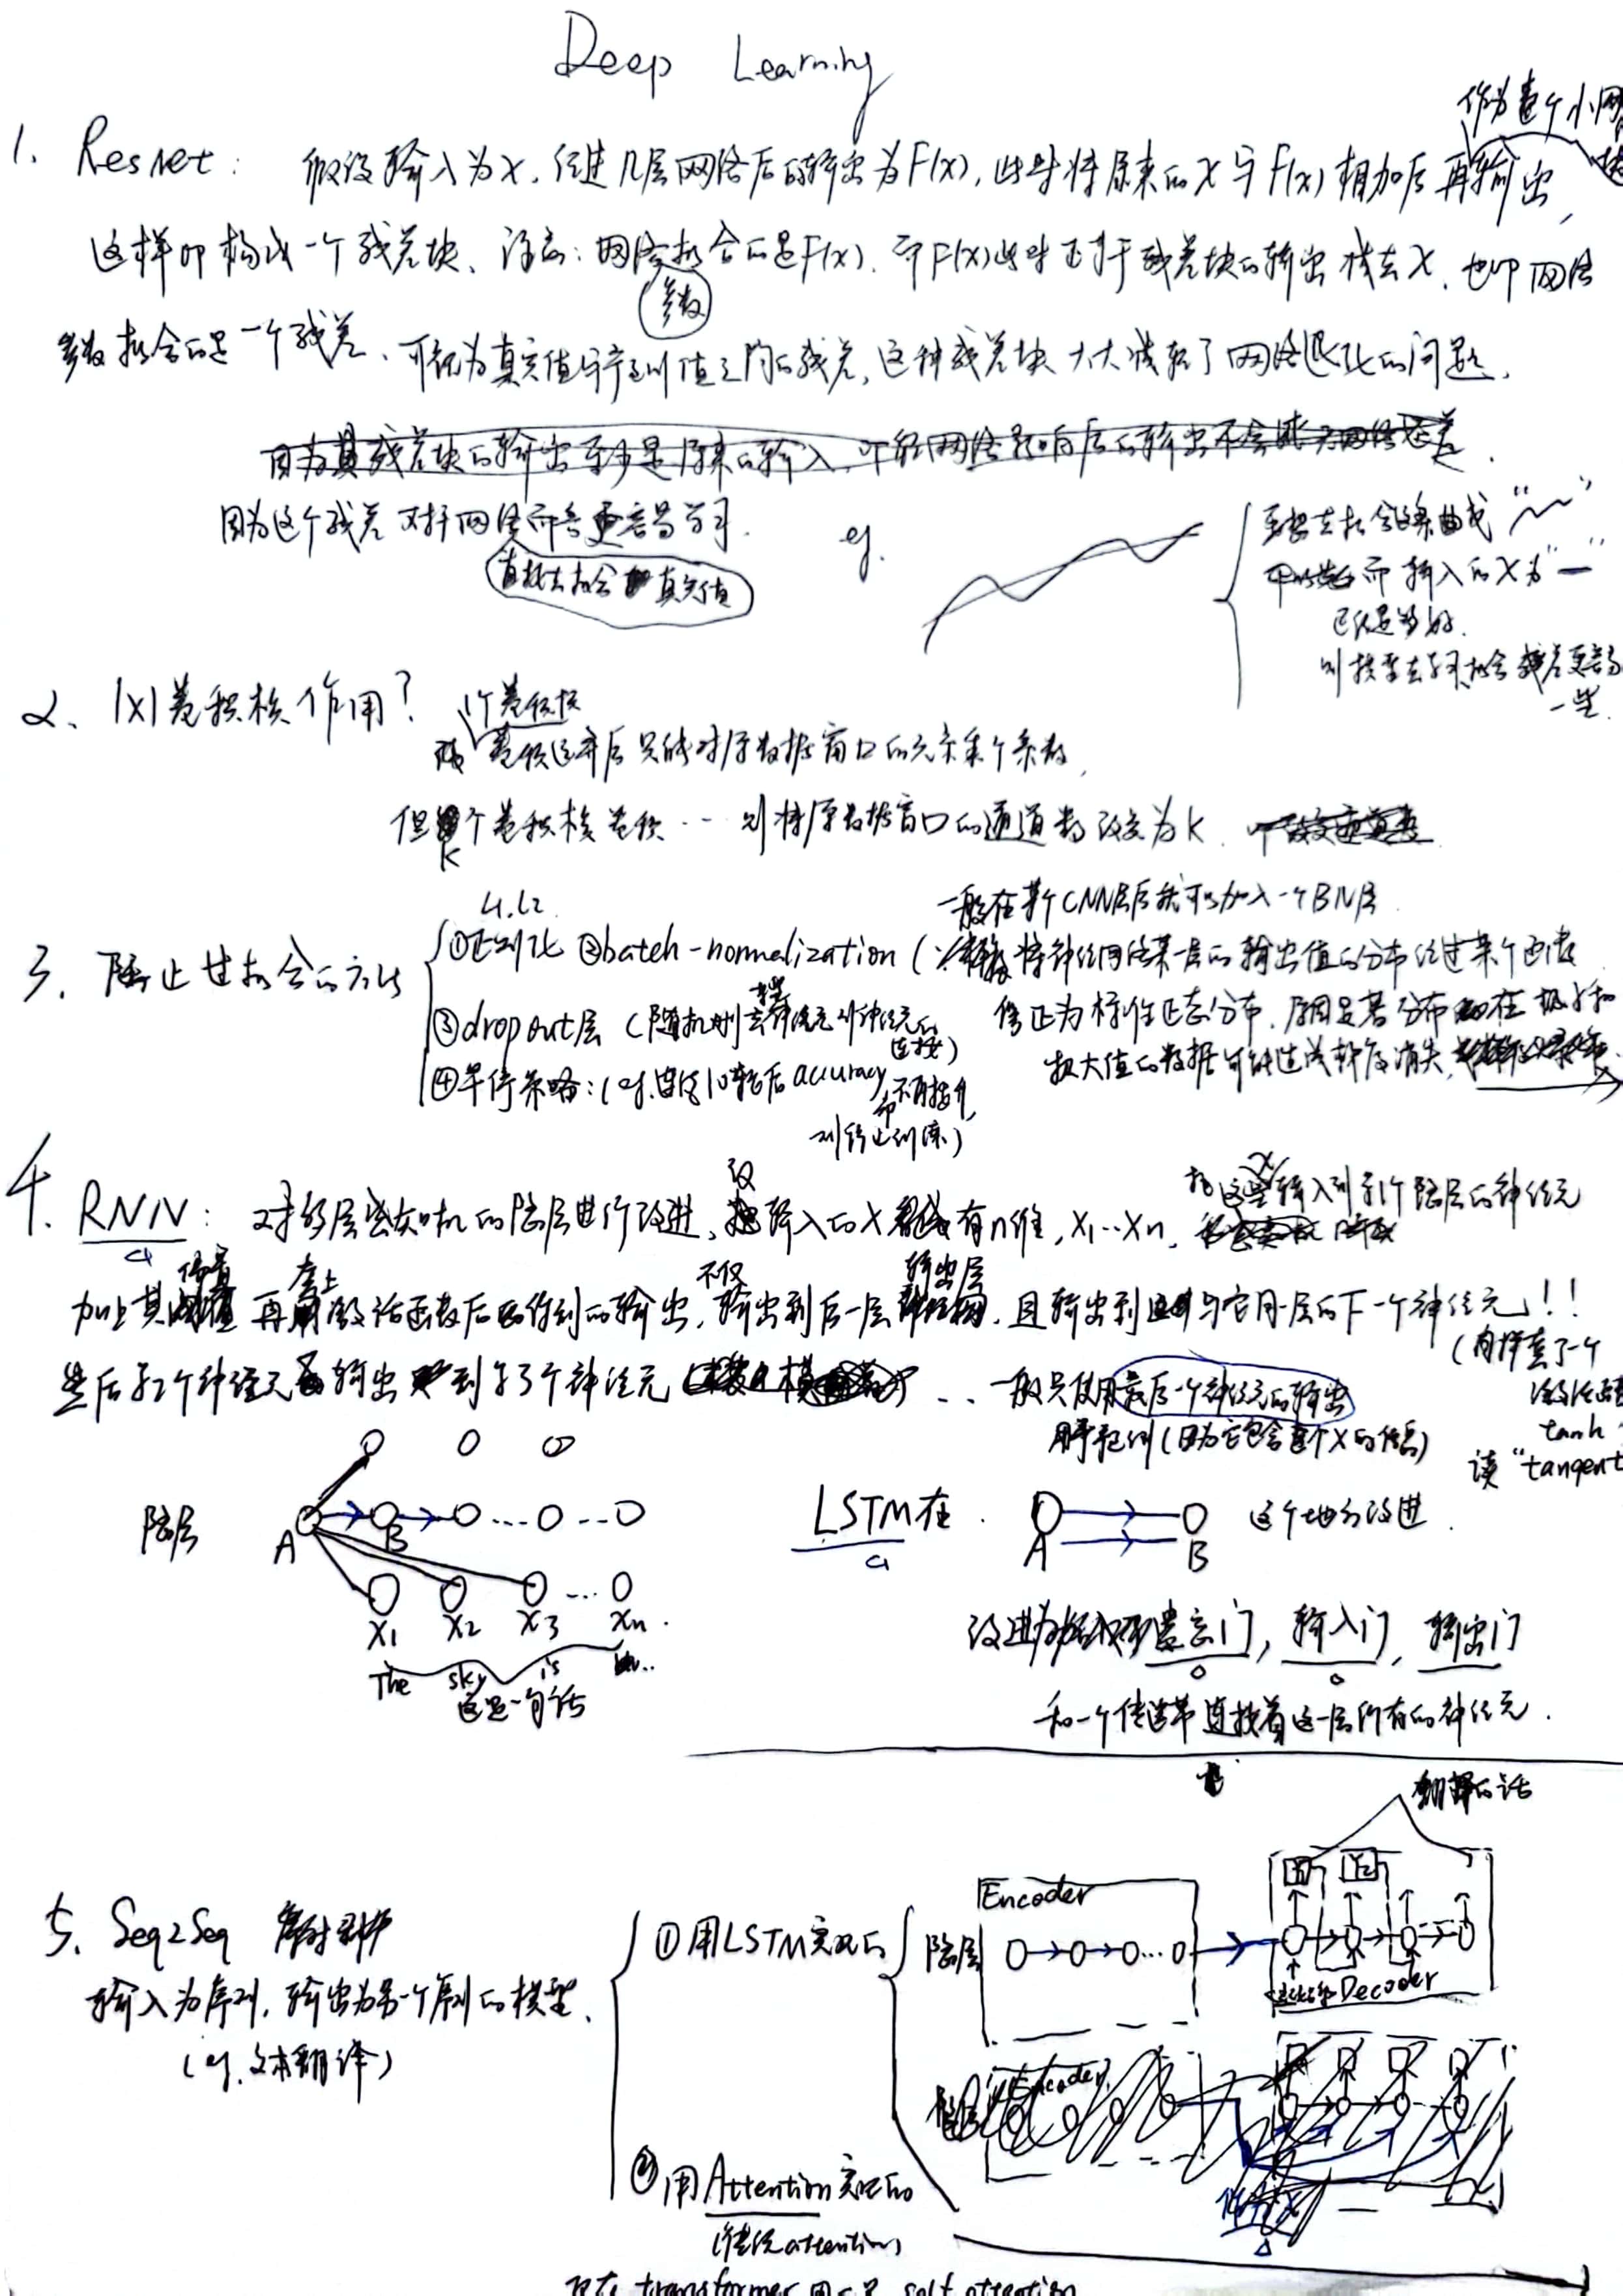 Deep Learning
作为整个小网
1. Resnet: 假设输入为X,经过几层网络后的输出为F(x),此时将原来的X与F(x)相加后再输出,
这样即构成一个残差块、注意:网络拟合的是F(x).而F(x)此时正等于残差块的输出减去X,也即网络
参数
参数拟合的是一个残差、可视为真实值与预测值之间的残差,这种残差块大大减轻了网络退化的问题.
因为其残差块的输出至少是原来的输入,
因为这个残差对于网络而言更容易学习.
直接去拟合 真实值
eg.
要想去拟合这条曲线“ ”
而输入的X为“ ”
已经足够好.
则接下来去拟合残差更容易
一些.
2、1x1卷积核作用?
1个卷积核
卷积运算后只能对原数据窗口的元素乘个系数,
但K个卷积核卷积…则将原数据窗口的通道数改变为K.
3. 防止过拟合的方法
L1.L2
①正则化 ②batch-normalization (
一般在某个CNN层后就可以加入一个BN层
将神经网络某一层的输出值的分布经过某个函数
修正为标准正态分布,原因是若分布在极小和
极大值的数据可能造成梯度消失,
③dropout层 (随机删去某些神经元到神经元的连接)
④早停策略:(eg.连续10轮后accuracy不再提升,
则停止训练)
4. RNN: 对多层感知机的隐层进行改进、设输入的X有n维,X1…Xn,
把X输入到第1个隐层的神经元
加上其偏置再套上激活函数后得到的输出,不仅输出到后一层输出层,且输出到与它同一层的下一个神经元!!
然后第2个神经元输出到第3个神经元 … 一般只使用最后一个神经元的输出
用于预测(因为它包含整个X的信息)
(同样套了一个
tanh
读“tangent
隐层 A B
X1 X2 X3 … Xn
The sky is
这是一句话
LSTM在 A B 这个地方改进.
改进为 遗忘门, 输入门, 输出门
和一个传送带连接着这一层所有的神经元.
翻译的话
5. Seq2Seq
输入为序列,输出为另一个序列的模型、
(eg.文本翻译)
①用LSTM实现的
隐层 Encoder
Y1 Y2
Decoder
②用Attention实现的
(传统attention)
现在transformer用的是self attention